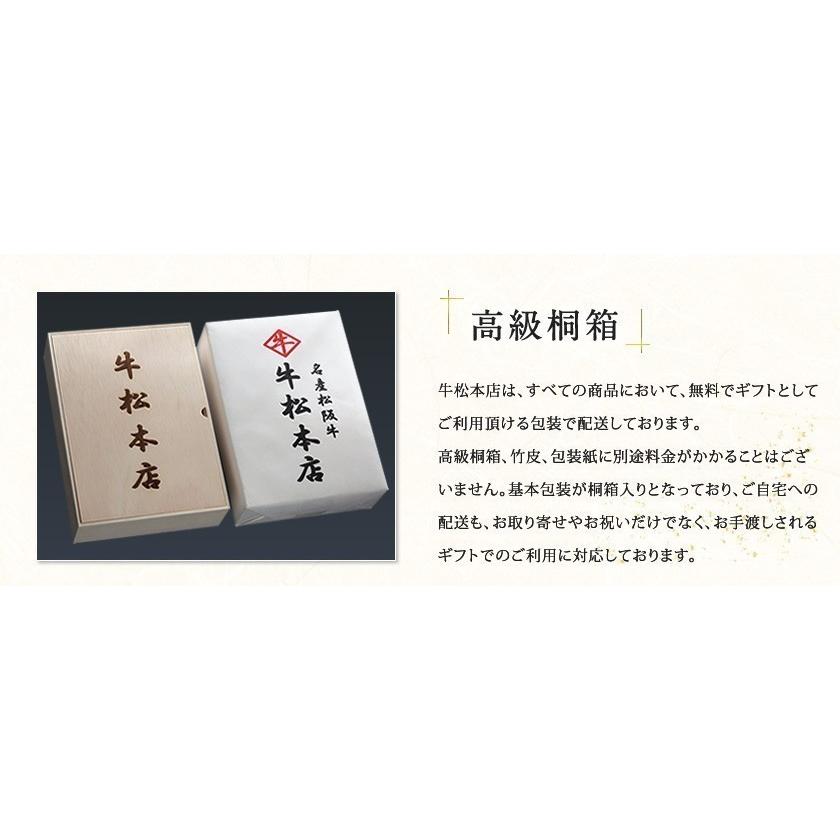 牛松本店
牛
名産松阪牛
牛松本店
高級桐箱
牛松本店は、すべての商品において、無料でギフトとして
ご利用頂ける包装で配送しております。
高級桐箱、竹皮、包装紙に別途料金がかかることはござ
いません。基本包装が桐箱入りとなっており、ご自宅への
配送も、お取り寄せやお祝いだけでなく、お手渡しされる
ギフトでのご利用に対応しております。